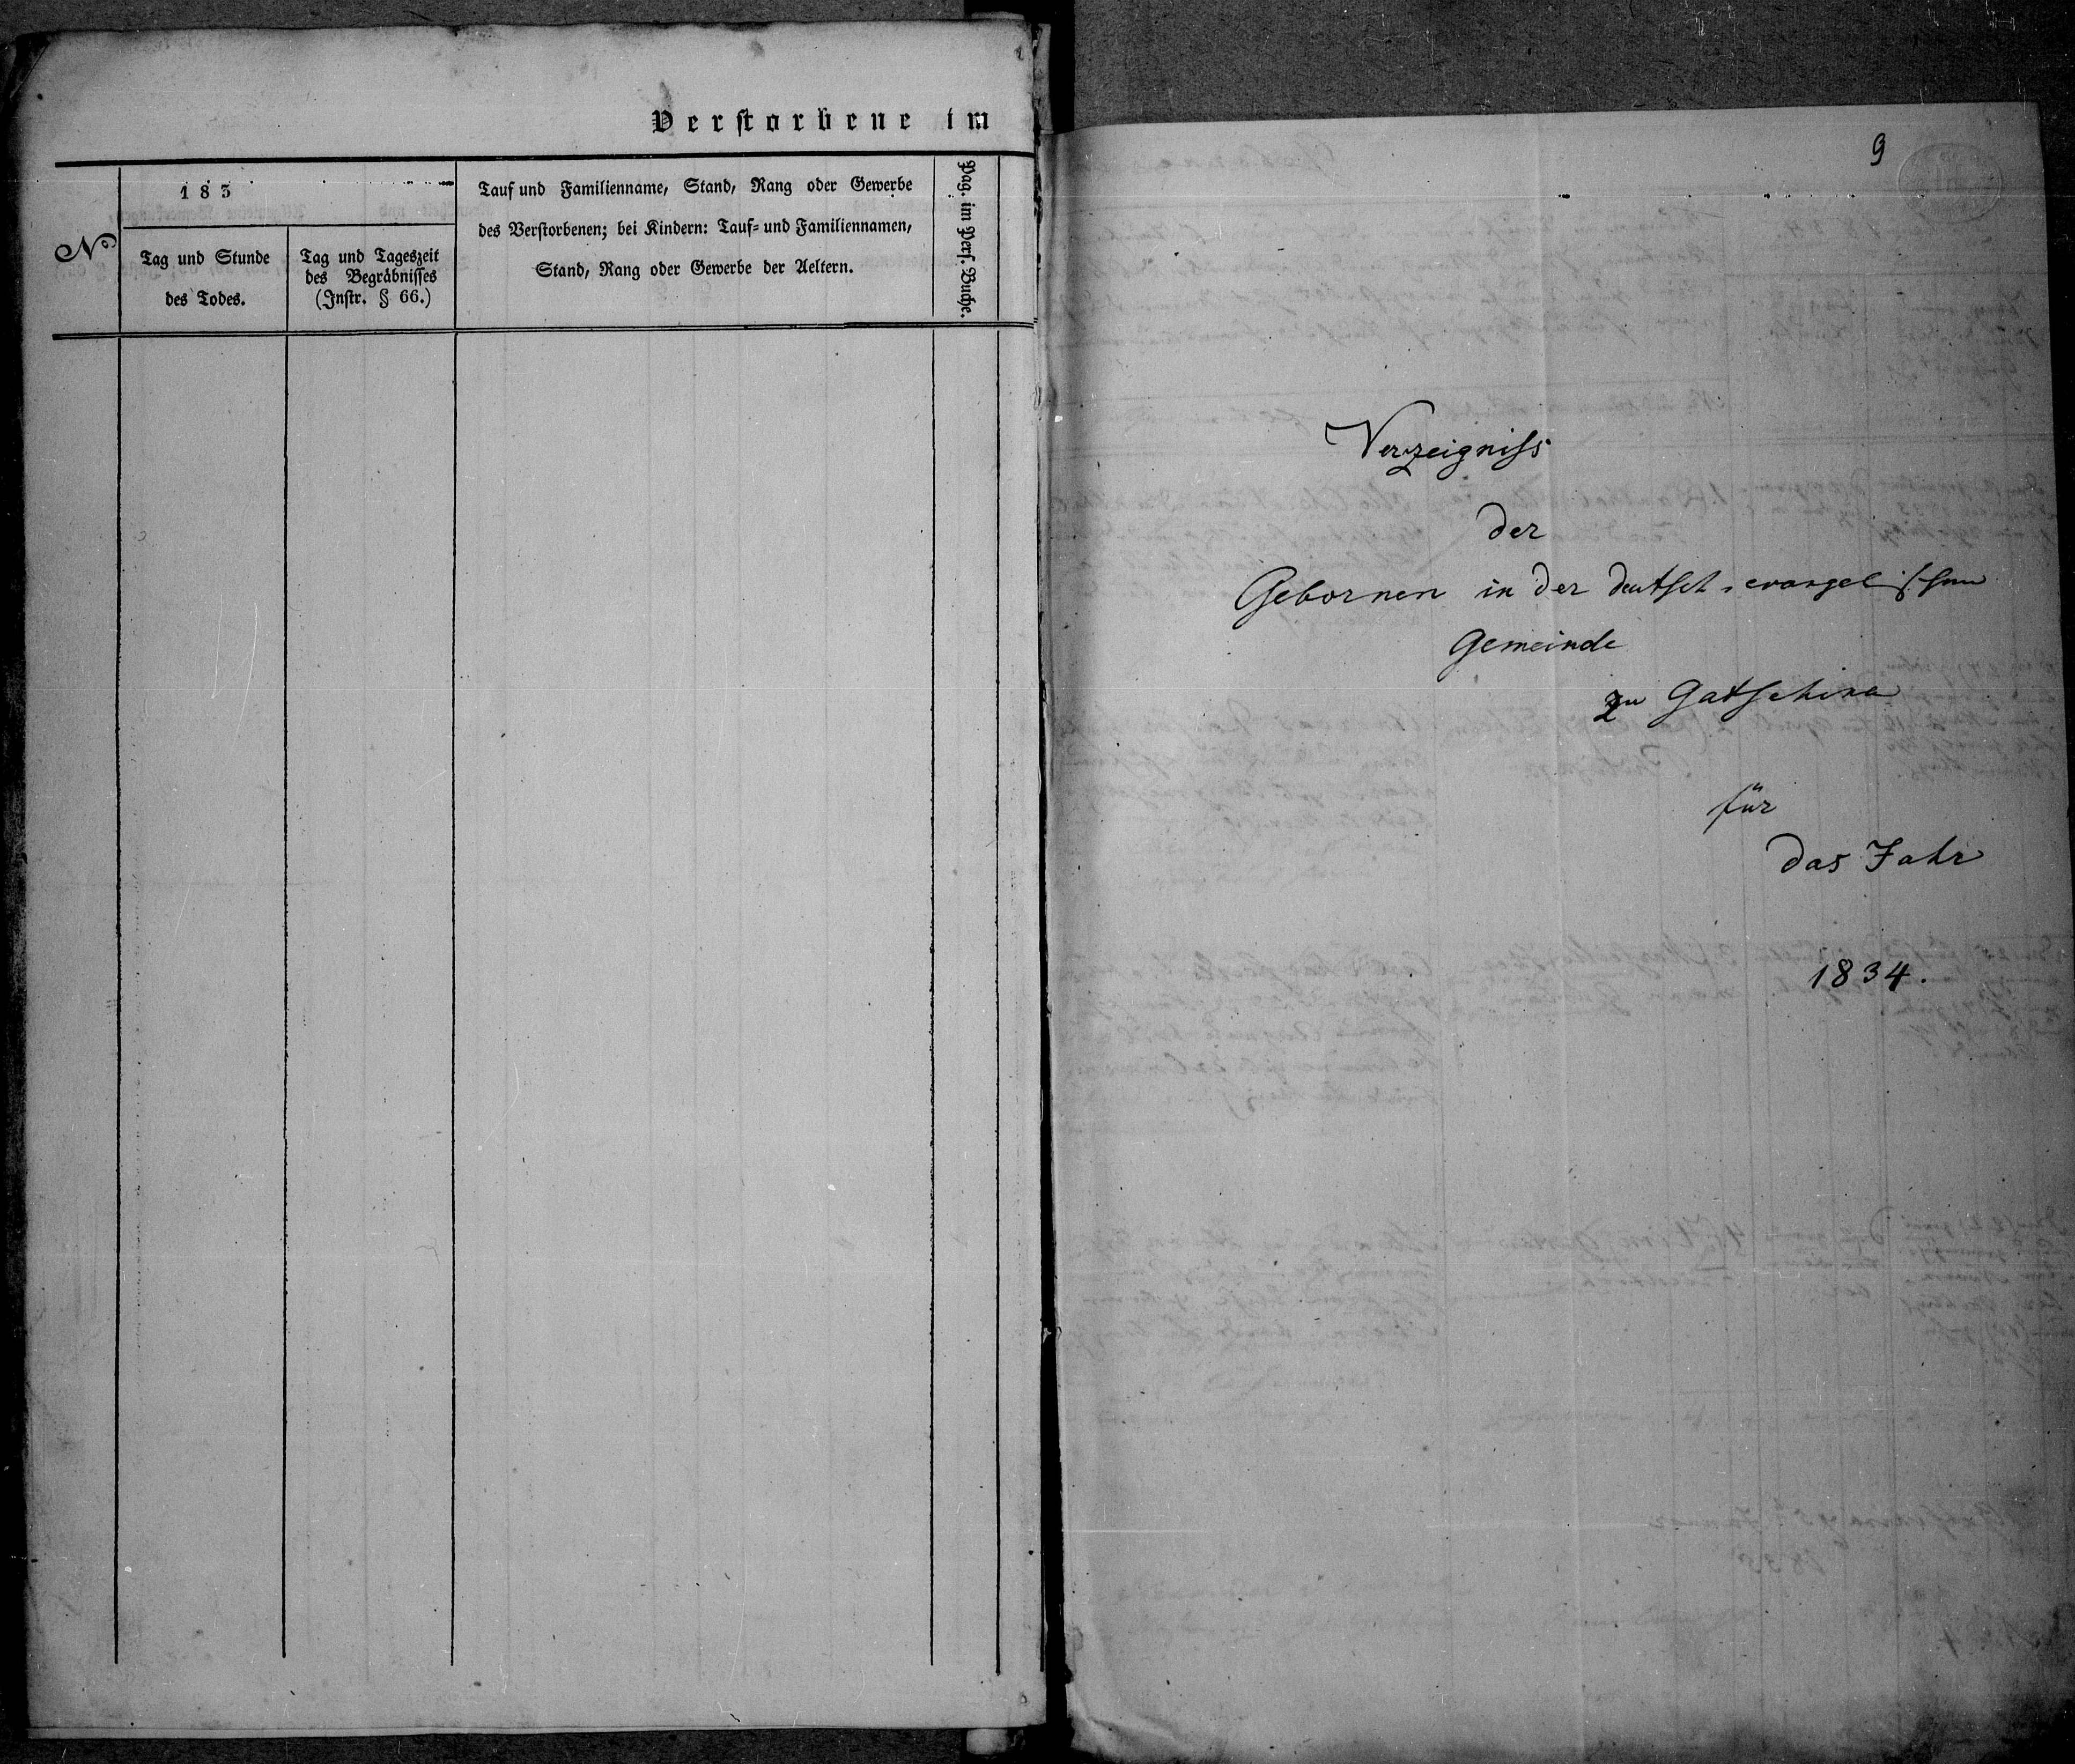 Verstorbene im
№
183
Tag und Stunde
des Todes.
Tag und Tageszeit
des Begräbnisses
(Instr. § 66.)
Tauf und Familienname, Stand, Rang oder Gewerbe
des Verstorbenen; bei Kindern: Tauf- und Familiennamen,
Stand, Rang oder Gewerbe der Aeltern.
Pag. im Pers. Buche.
9
Verzeigniss
der
Gebornen in der deutsch-evangelischen
Gemeinde
zu Gatschina
für
das Jahr
1834.